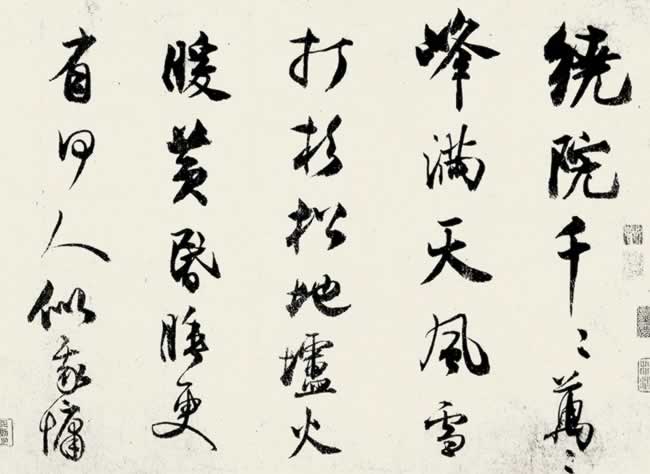 繞院千〻萬〻
峰滿天風雪
打杉松地爐火
暖黃昏睡更
有何人似我慵